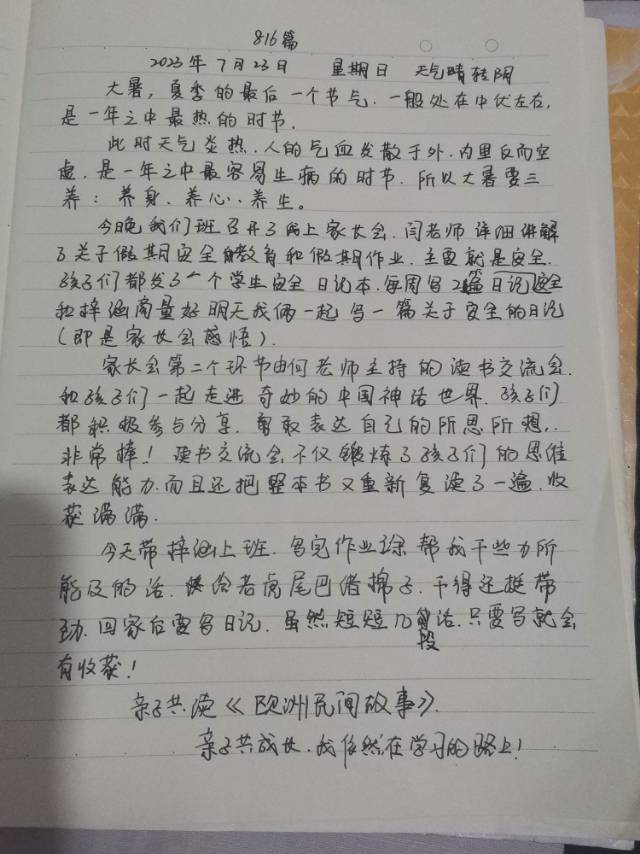 816篇
2023年7月23日 星期日 天气晴转阴
大暑，夏季的最后一个节气.一般处在中伏左右,
是一年之中最热的时节.
此时天气炎热.人的气血发散于外.内里反而空
虚.是一年之中最容易生病的时节.所以大暑要三
养：养身.养心.养生。
今日晚我们班召开了网上家长会.闫老师详细讲解
了关于假期安全教育和假期作业.主要就是安全.
孩子们都发了一个学生安全日记本.每周写2篇日记
和梓涵商量好明天我俩一起写一篇关于安全的日记
(即是家长会感悟).
家长会第二个环节由何老师主持的读书交流会.
和孩子们一起走进奇妙的中国神话世界.孩子们
都积极参与分享.勇敢表达自己的所思所想.
非常棒！读书交流会不仅锻炼了孩子们的思维
表达能力.而且还把整本书又重新复读了一遍.收
获满满.
今天带梓涵上班.写完作业还帮我干些力所
能及的活.给老虎尾巴绪棉子.干得还挺带
劲.回家后要写日记.虽然短短几段话.只要写就会
有收获！
亲子共读《欧洲民间故事》.
亲子共成长.我依然在学习的路上！